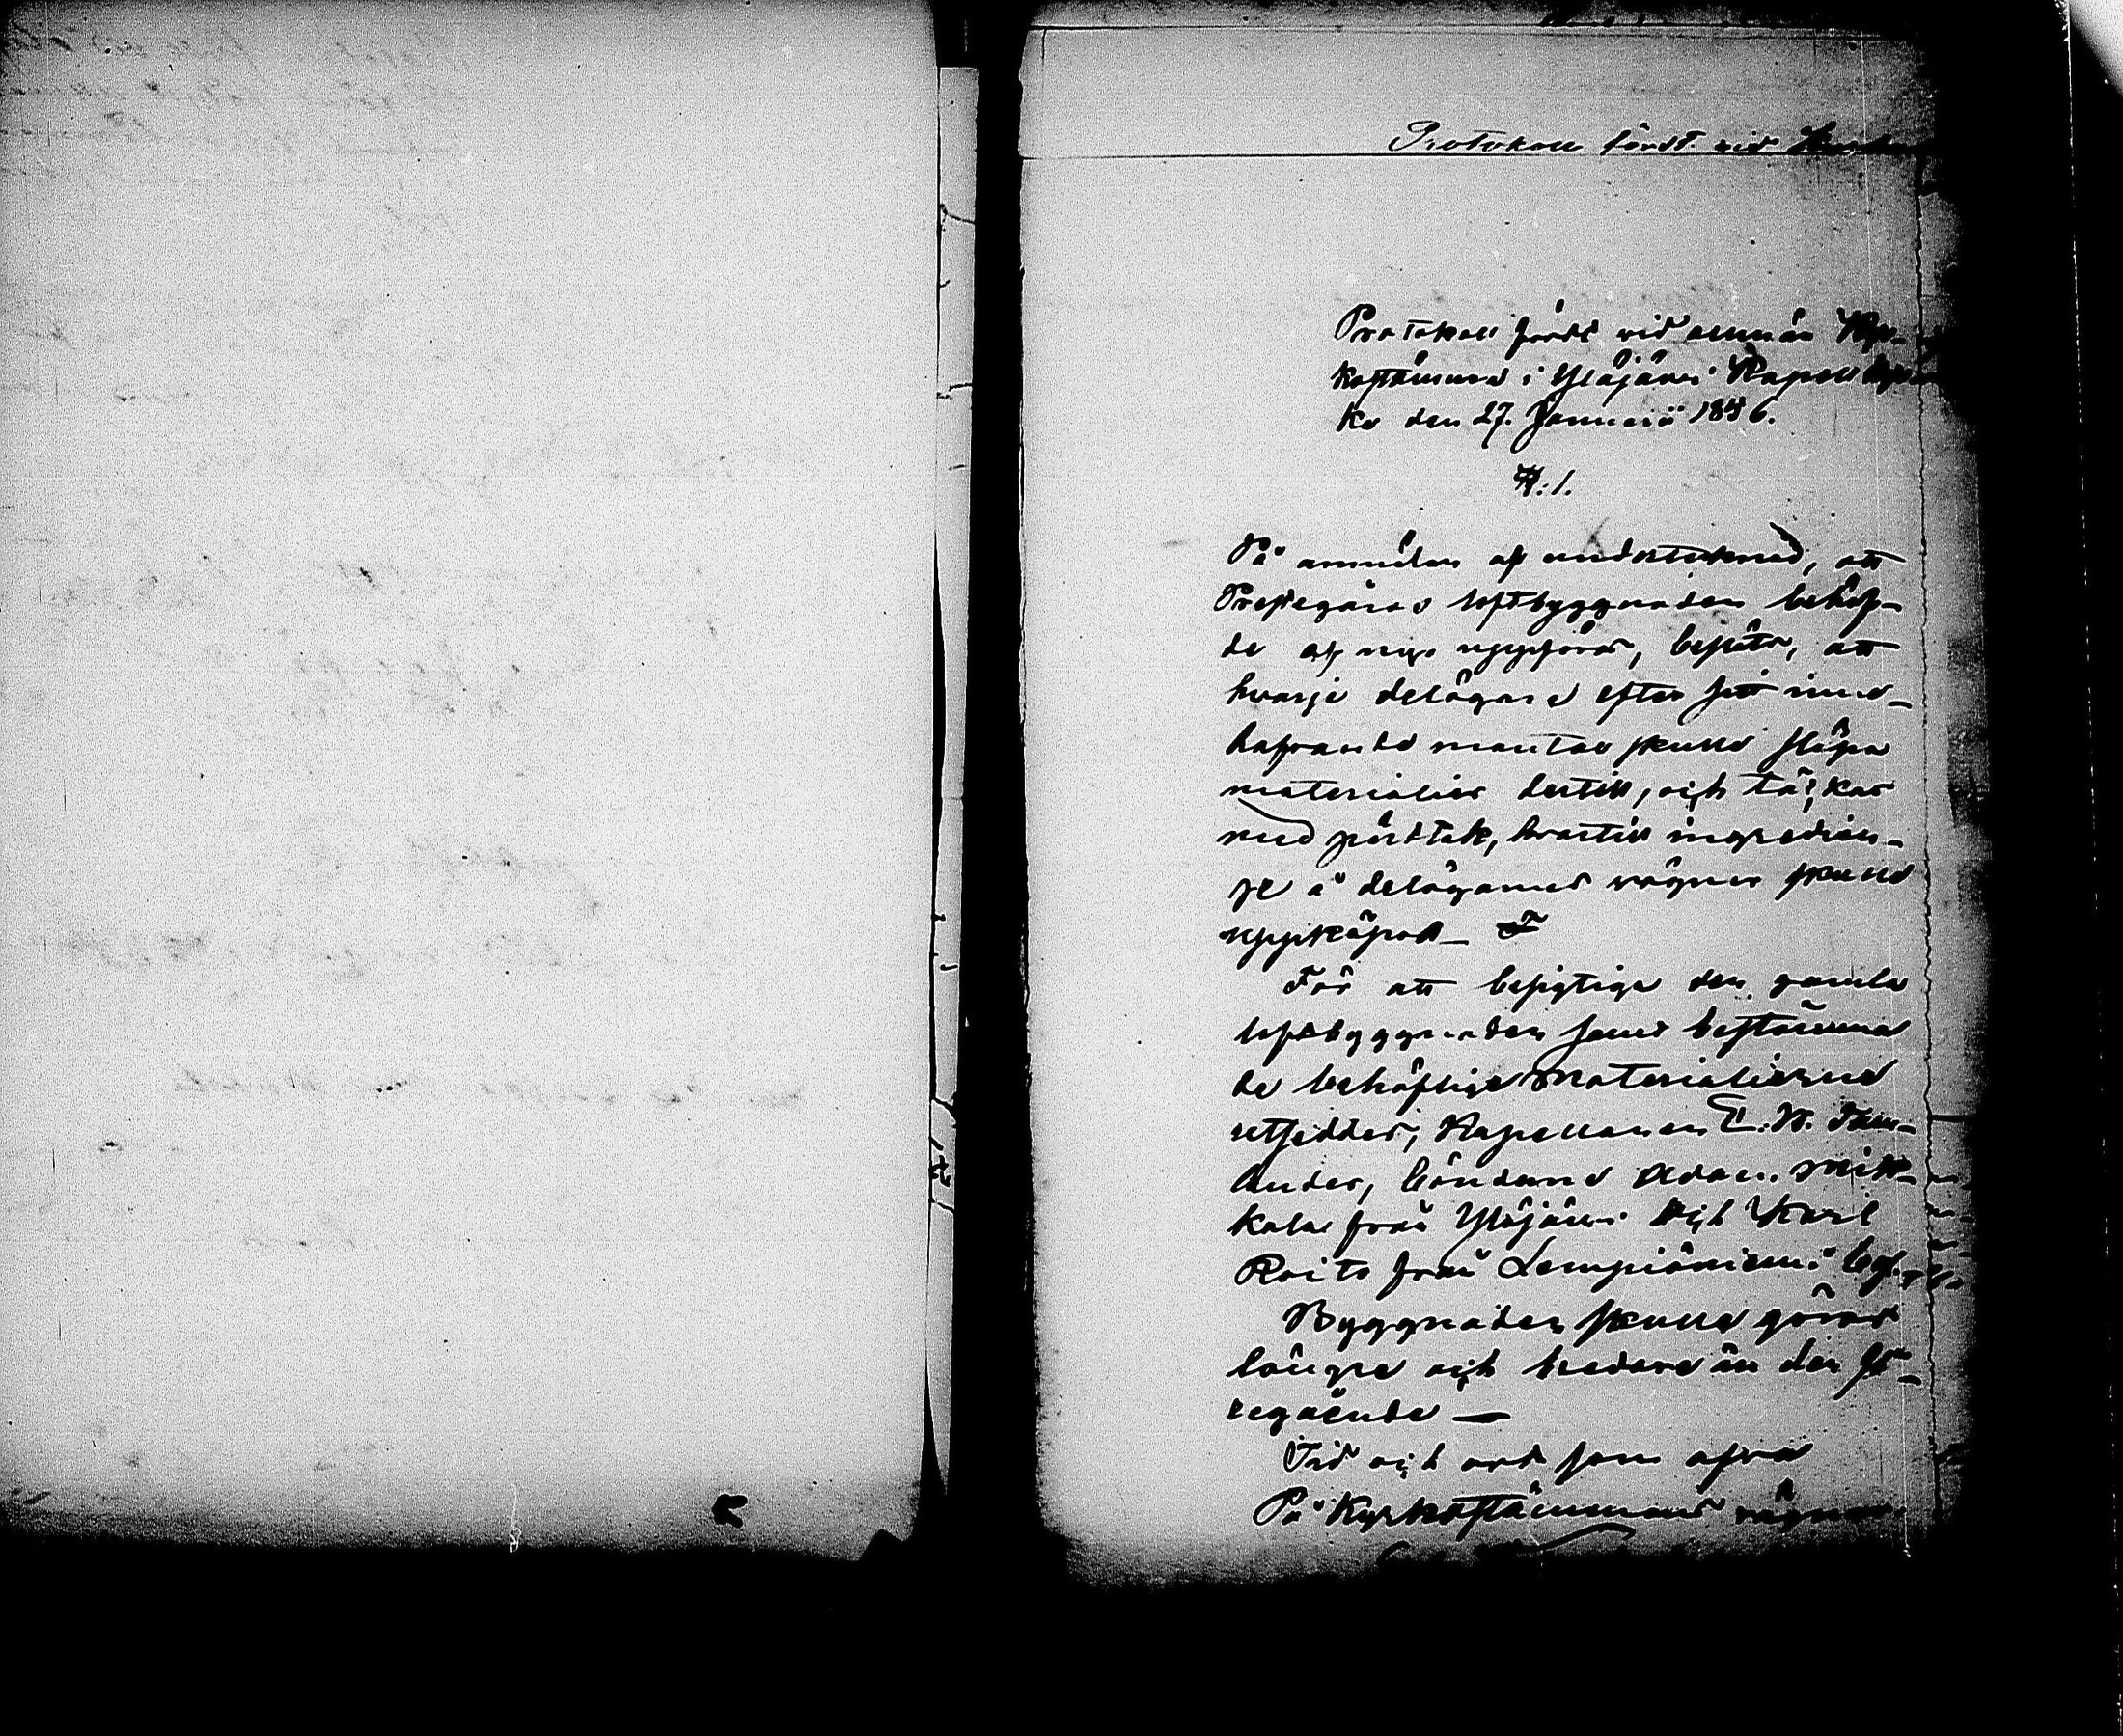 Protokoll fördt vid
Protokoll fördt vid allmän Kyr-
kostämma i Ylöjärvi Kapell kyr
ka den 27. Januarii 1846.
§:1.
På anmälan af undertecknad, att
Prestegårds loftbyggnaden behöf-
de af nyo uppföras, beslöts, att
hvarje delägare efter sitt inne-
hafvande mantal skulle släpa
materialier dertill, och täckas
med pärttak, hvartill ingredien-
se å delägarnes vägnar skulle
uppköpas_
För att besigtiga den gamla
loftbyggnaden samt bestämma
de behöfliga materialierne
utsedder, Kapellanen E. W.
lander, bönderne Adam Mik-
kola från Ylöjärvi och Karl
Roito från Lempiäniemi by.
Byggnaden skulle göras
längre och bredare än den fö-
regående —
Tid och ord som ofvan
På Kyrkostämmans vägnar